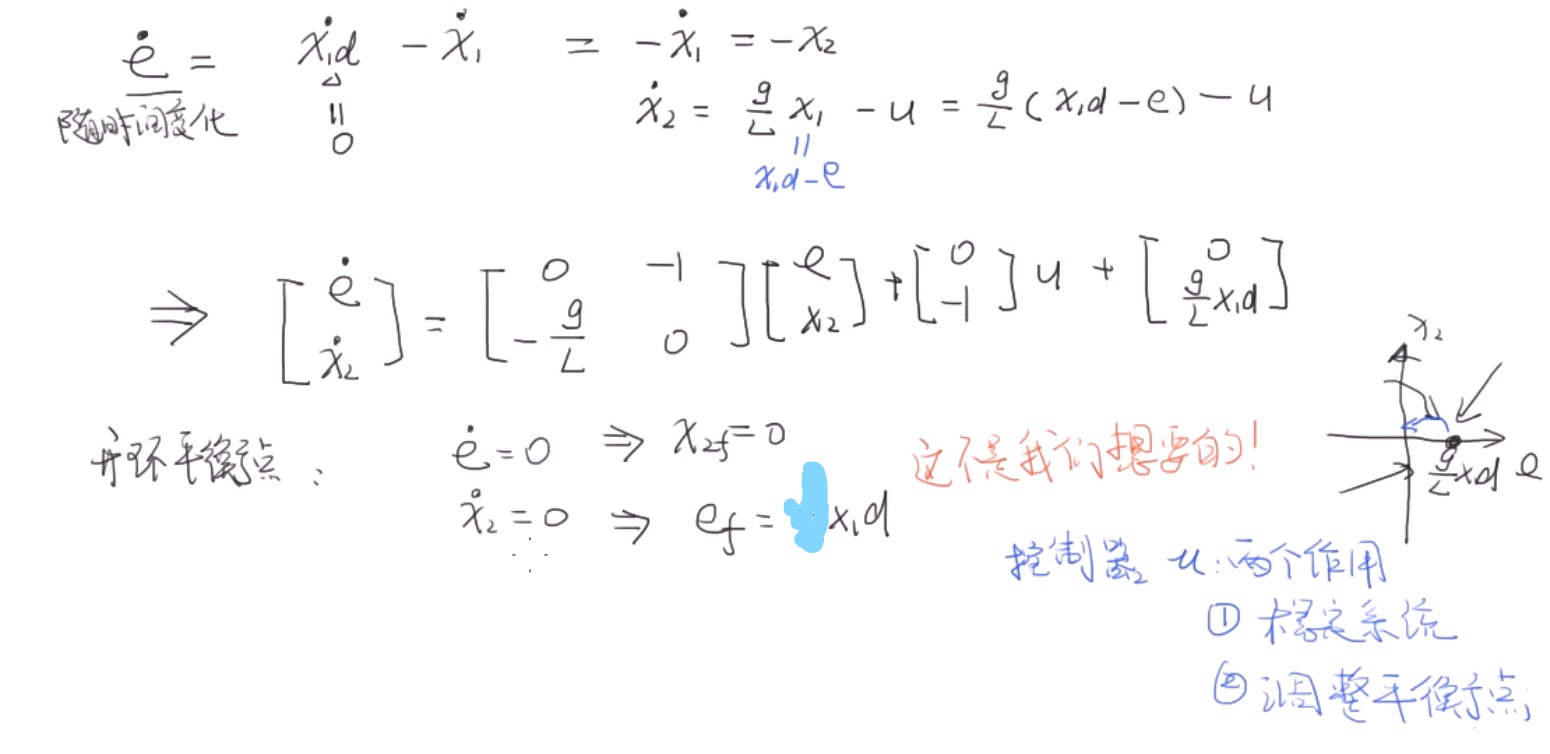 ė = ẋ₁d - ẋ₁ = -ẋ₁ = -x₂
随时间变化
॥
0
ẋ₂ = g/L x₁ - u = g/L (x₁d - e) - u
॥
x₁d - e
⇒ [ė ẋ₂] = [0 -1 -g/L 0] [e x₂] + [0 -1] u + [0 g/L x₁d]
开环平衡点: ė = 0 ⇒ x₂f = 0
ẋ₂ = 0 ⇒ ef = x₁d
这不是我们想要的!
x₂
g/L xd e
控制器 u: 两个作用
① 稳定系统
② 调整平衡点;